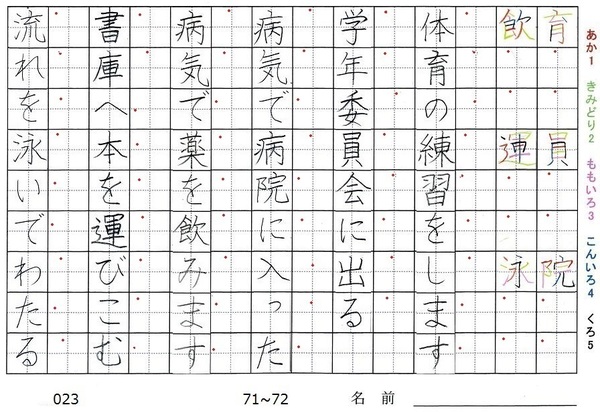 あか1 きみどり2 ももいろ3 こんいろ4 くろ5
育 員 院
飲 運 泳
体育の練習をします
学年委員会に出る
病気で病院に入った
病気で薬を飲みます
書庫へ本を運びこむ
流れを泳いでわたる
023 71~72 名前